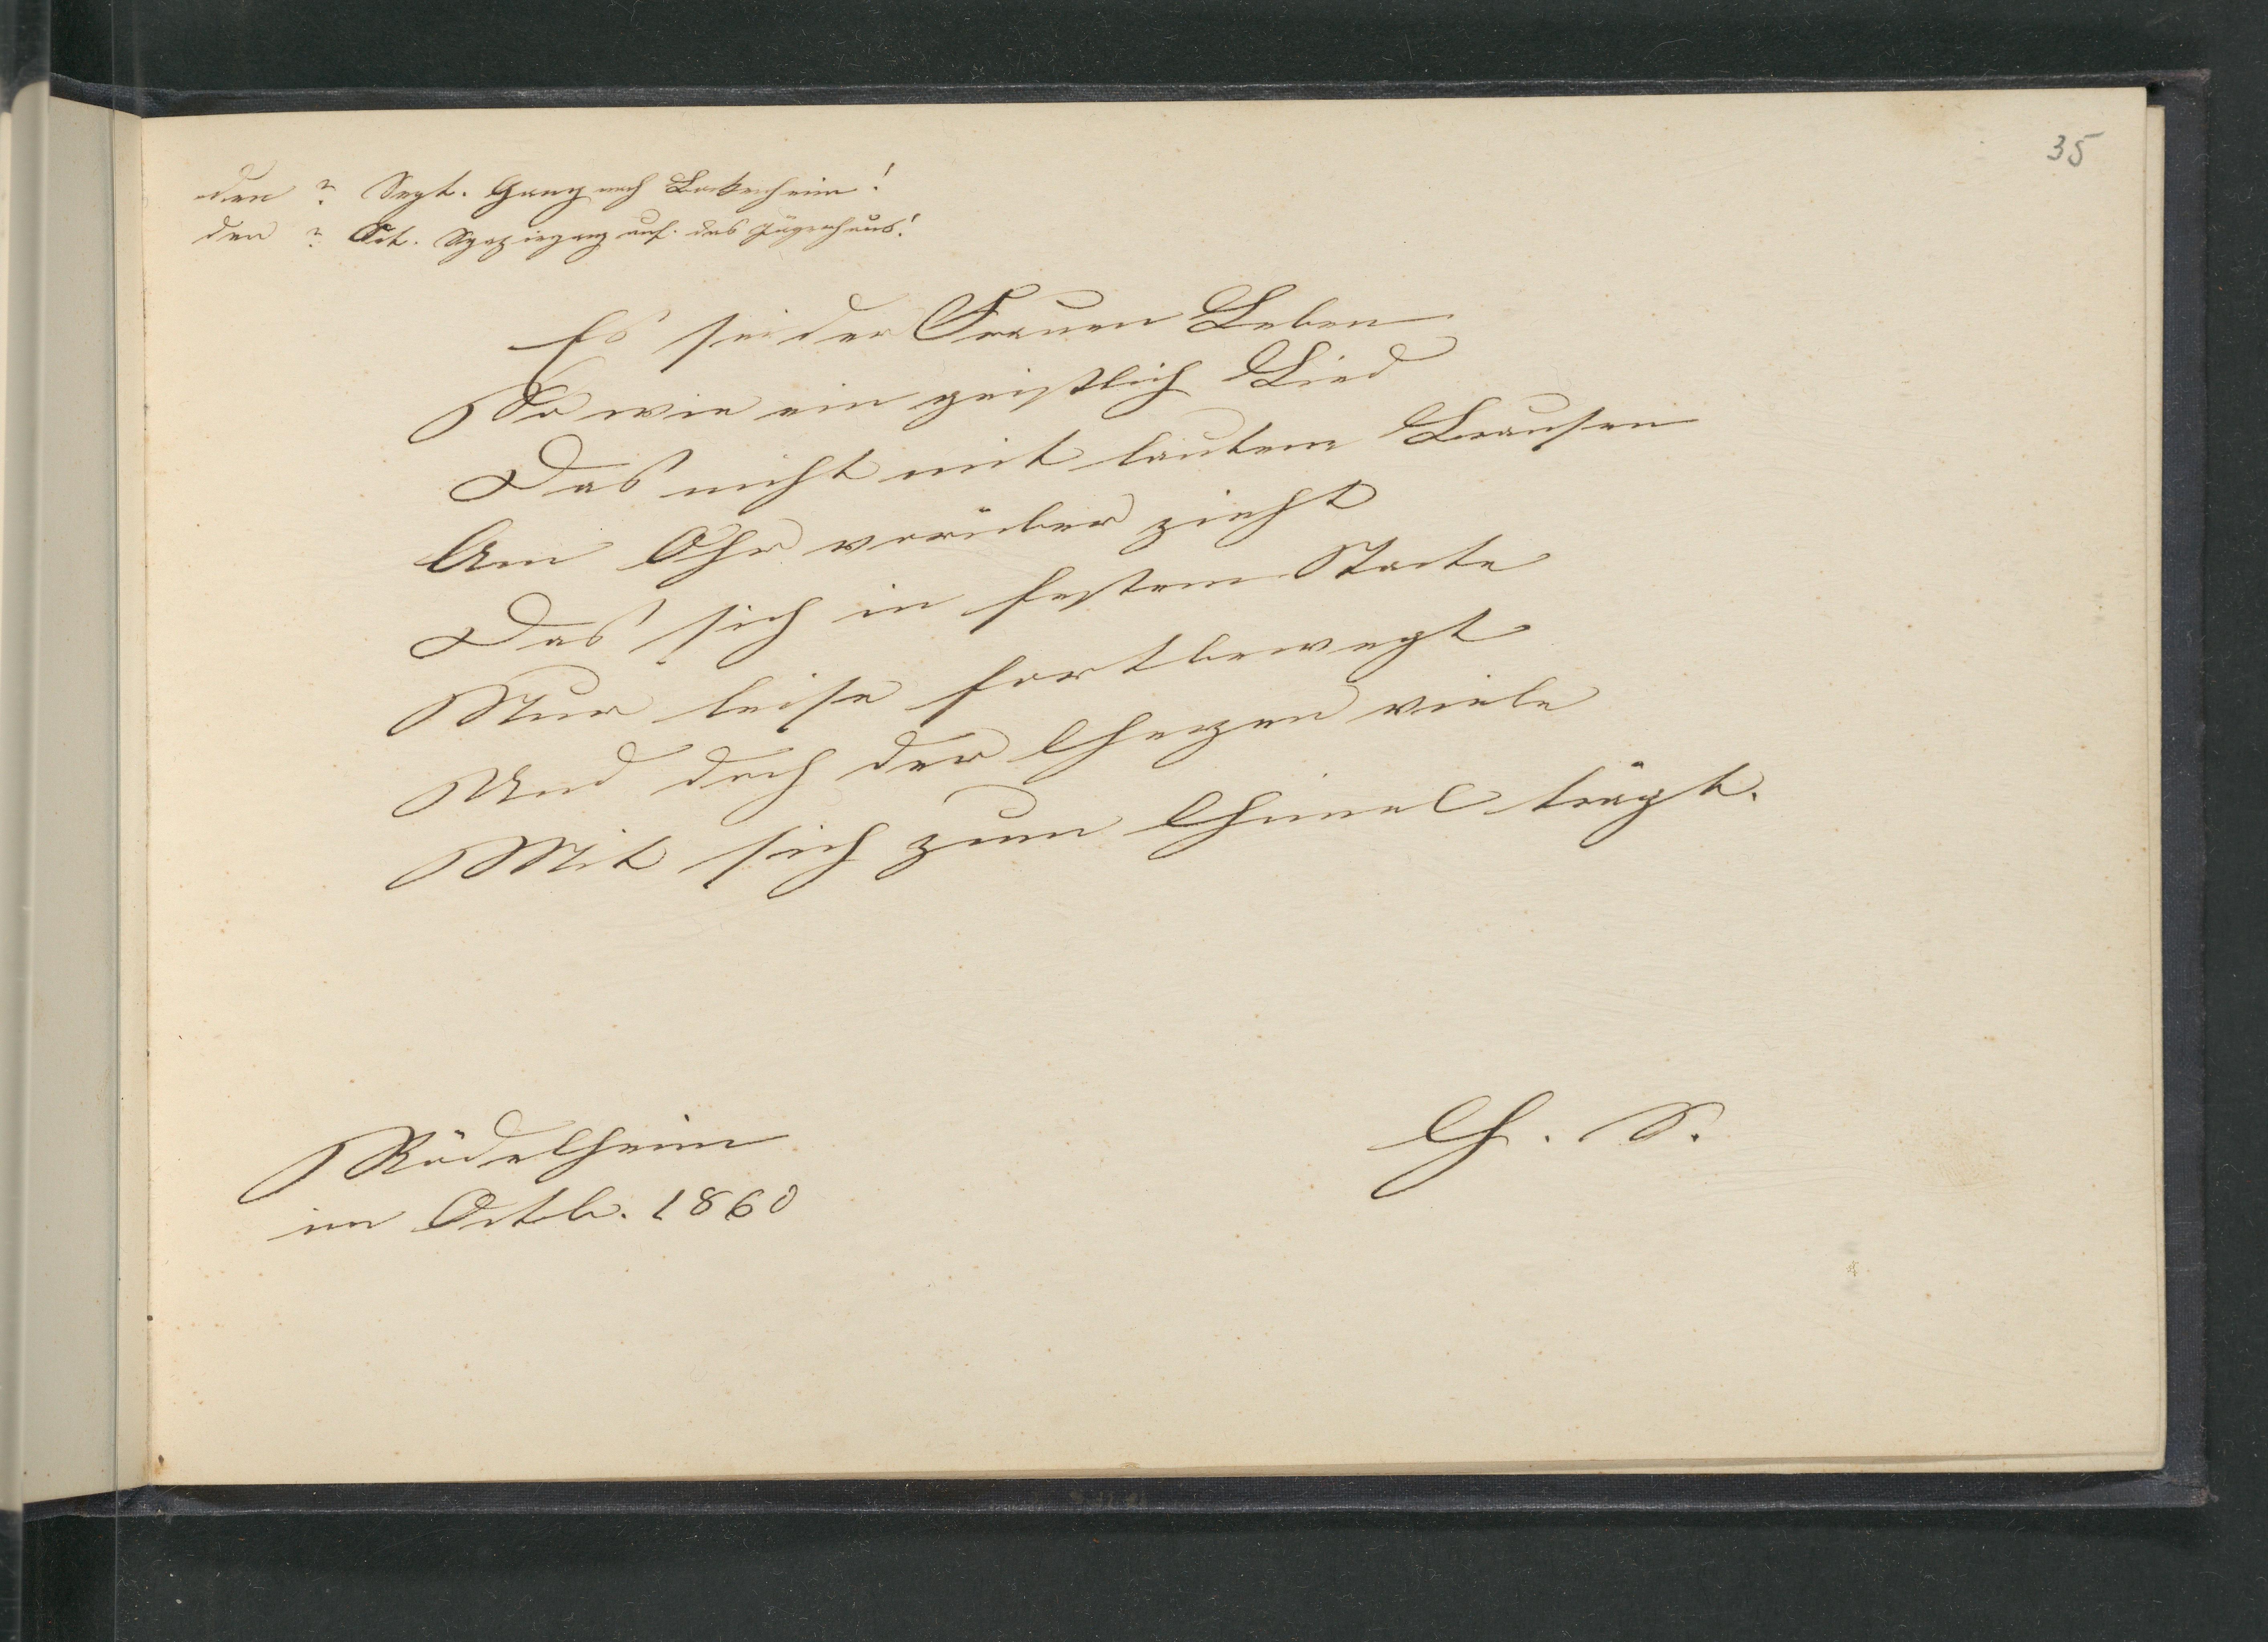 35
den ? Sept. Gang nach Bockenheim!
den ? Oct. Spaziergang auf das Jägerhaus!
Es sei der Frauen Leben
So wie ein geistlich Lied
Das nicht mit lautem Brausen
Am Ohr vorüber zieht
Das sich in festem Takte
Nur leise fortbewegt
Und doch der Herzen viele
Mit sich zum Himel trägt.
Rödelheim
im Octb. 1860
H. S.